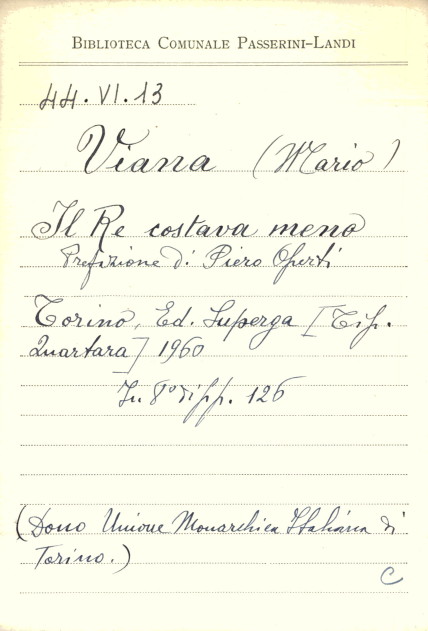 BIBLIOTECA COMUNALE PASSERINI-LANDI
44.VI.13
Viana (Mario)
Il Re costava meno
Prefazione di Piero Operti
Torino, Ed. Superga [Tip.
Quartara] 1960
In 8° di pp. 126
(Dono Unione Monarchica Italiana di
Torino.)
C